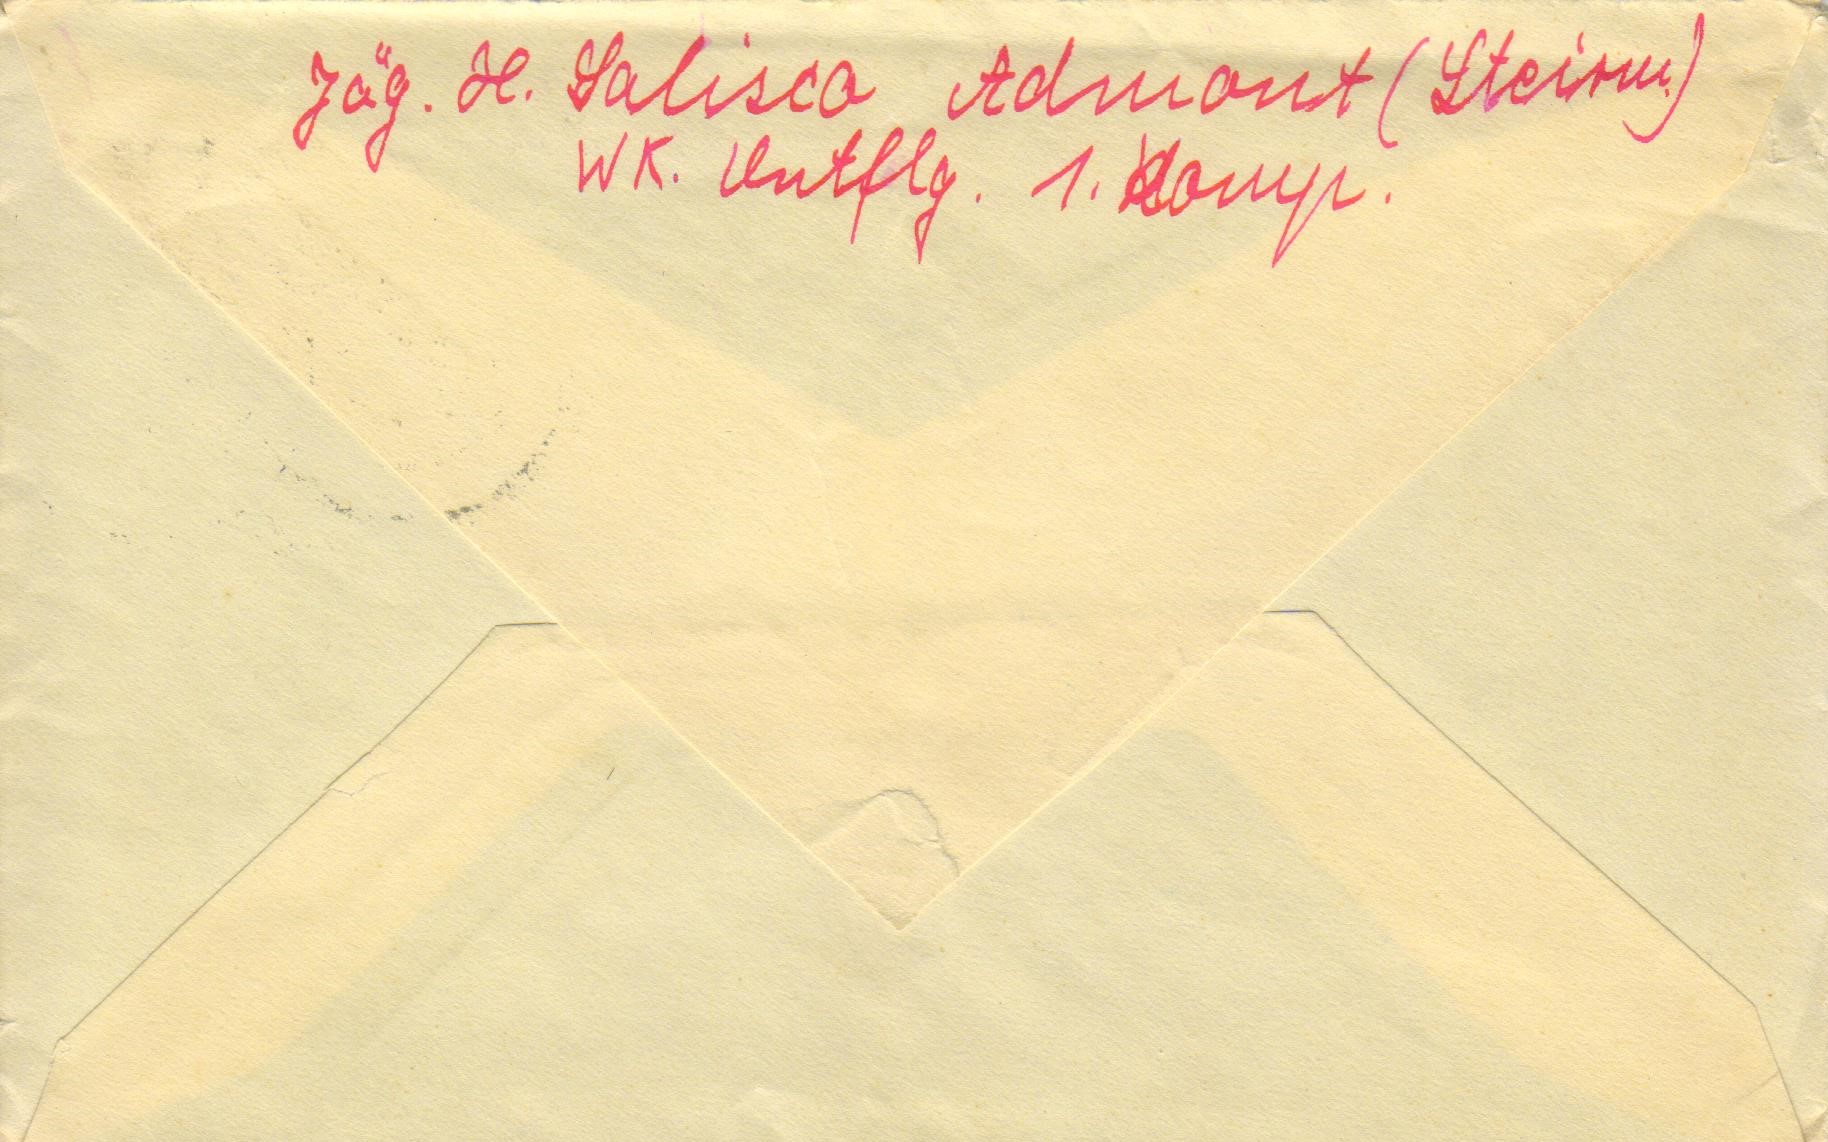 Jäg. H. Salisco Admont (Steirm.)
WK. Untflg. 1. Komp.